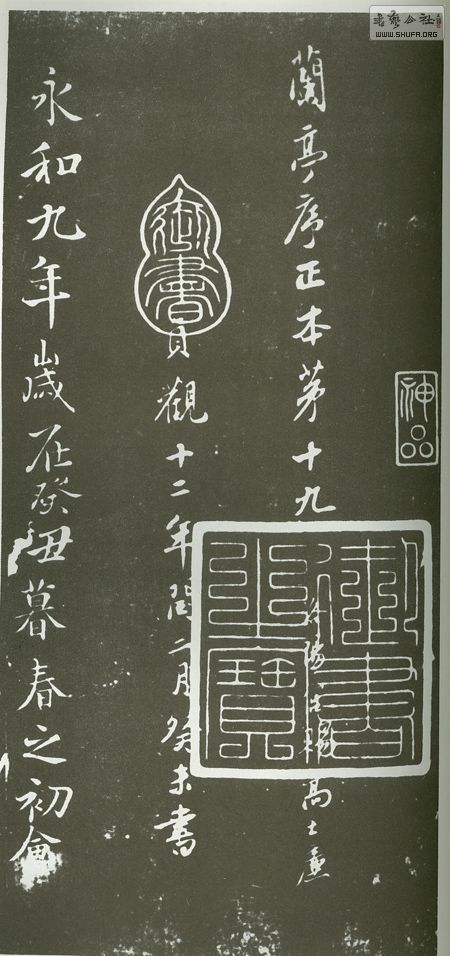 書藝公社
WWW.SHUFA.ORG
神品
蘭亭序正本苐十九
洛陽宮賜高士廉
御書之寶
御書
貞觀十二年閏二月癸未書
永和九年歲在癸丑暮春之初會